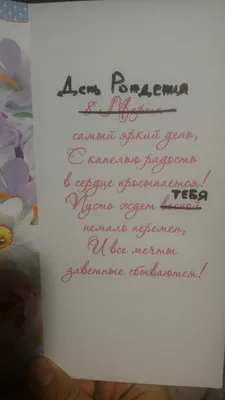 День Рождения
8 Марта
самый яркий день,
С капелью радость
в сердце просыпается!
ТЕБЯ
Пусть ждет весной
немало перемен,
И все мечты
заветные сбываются!